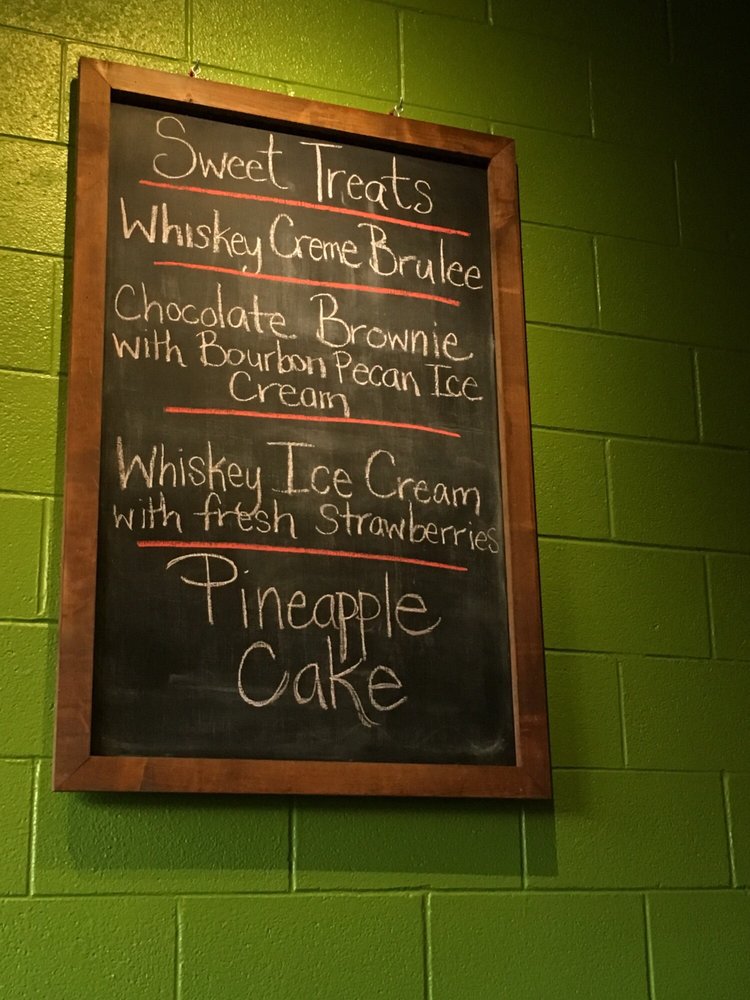 Sweet Treats
Whiskey Creme Brulee
Chocolate Brownie
with Bourbon Pecan Ice
Cream
Whiskey Ice Cream
with fresh Strawberries
Pineapple
Cake